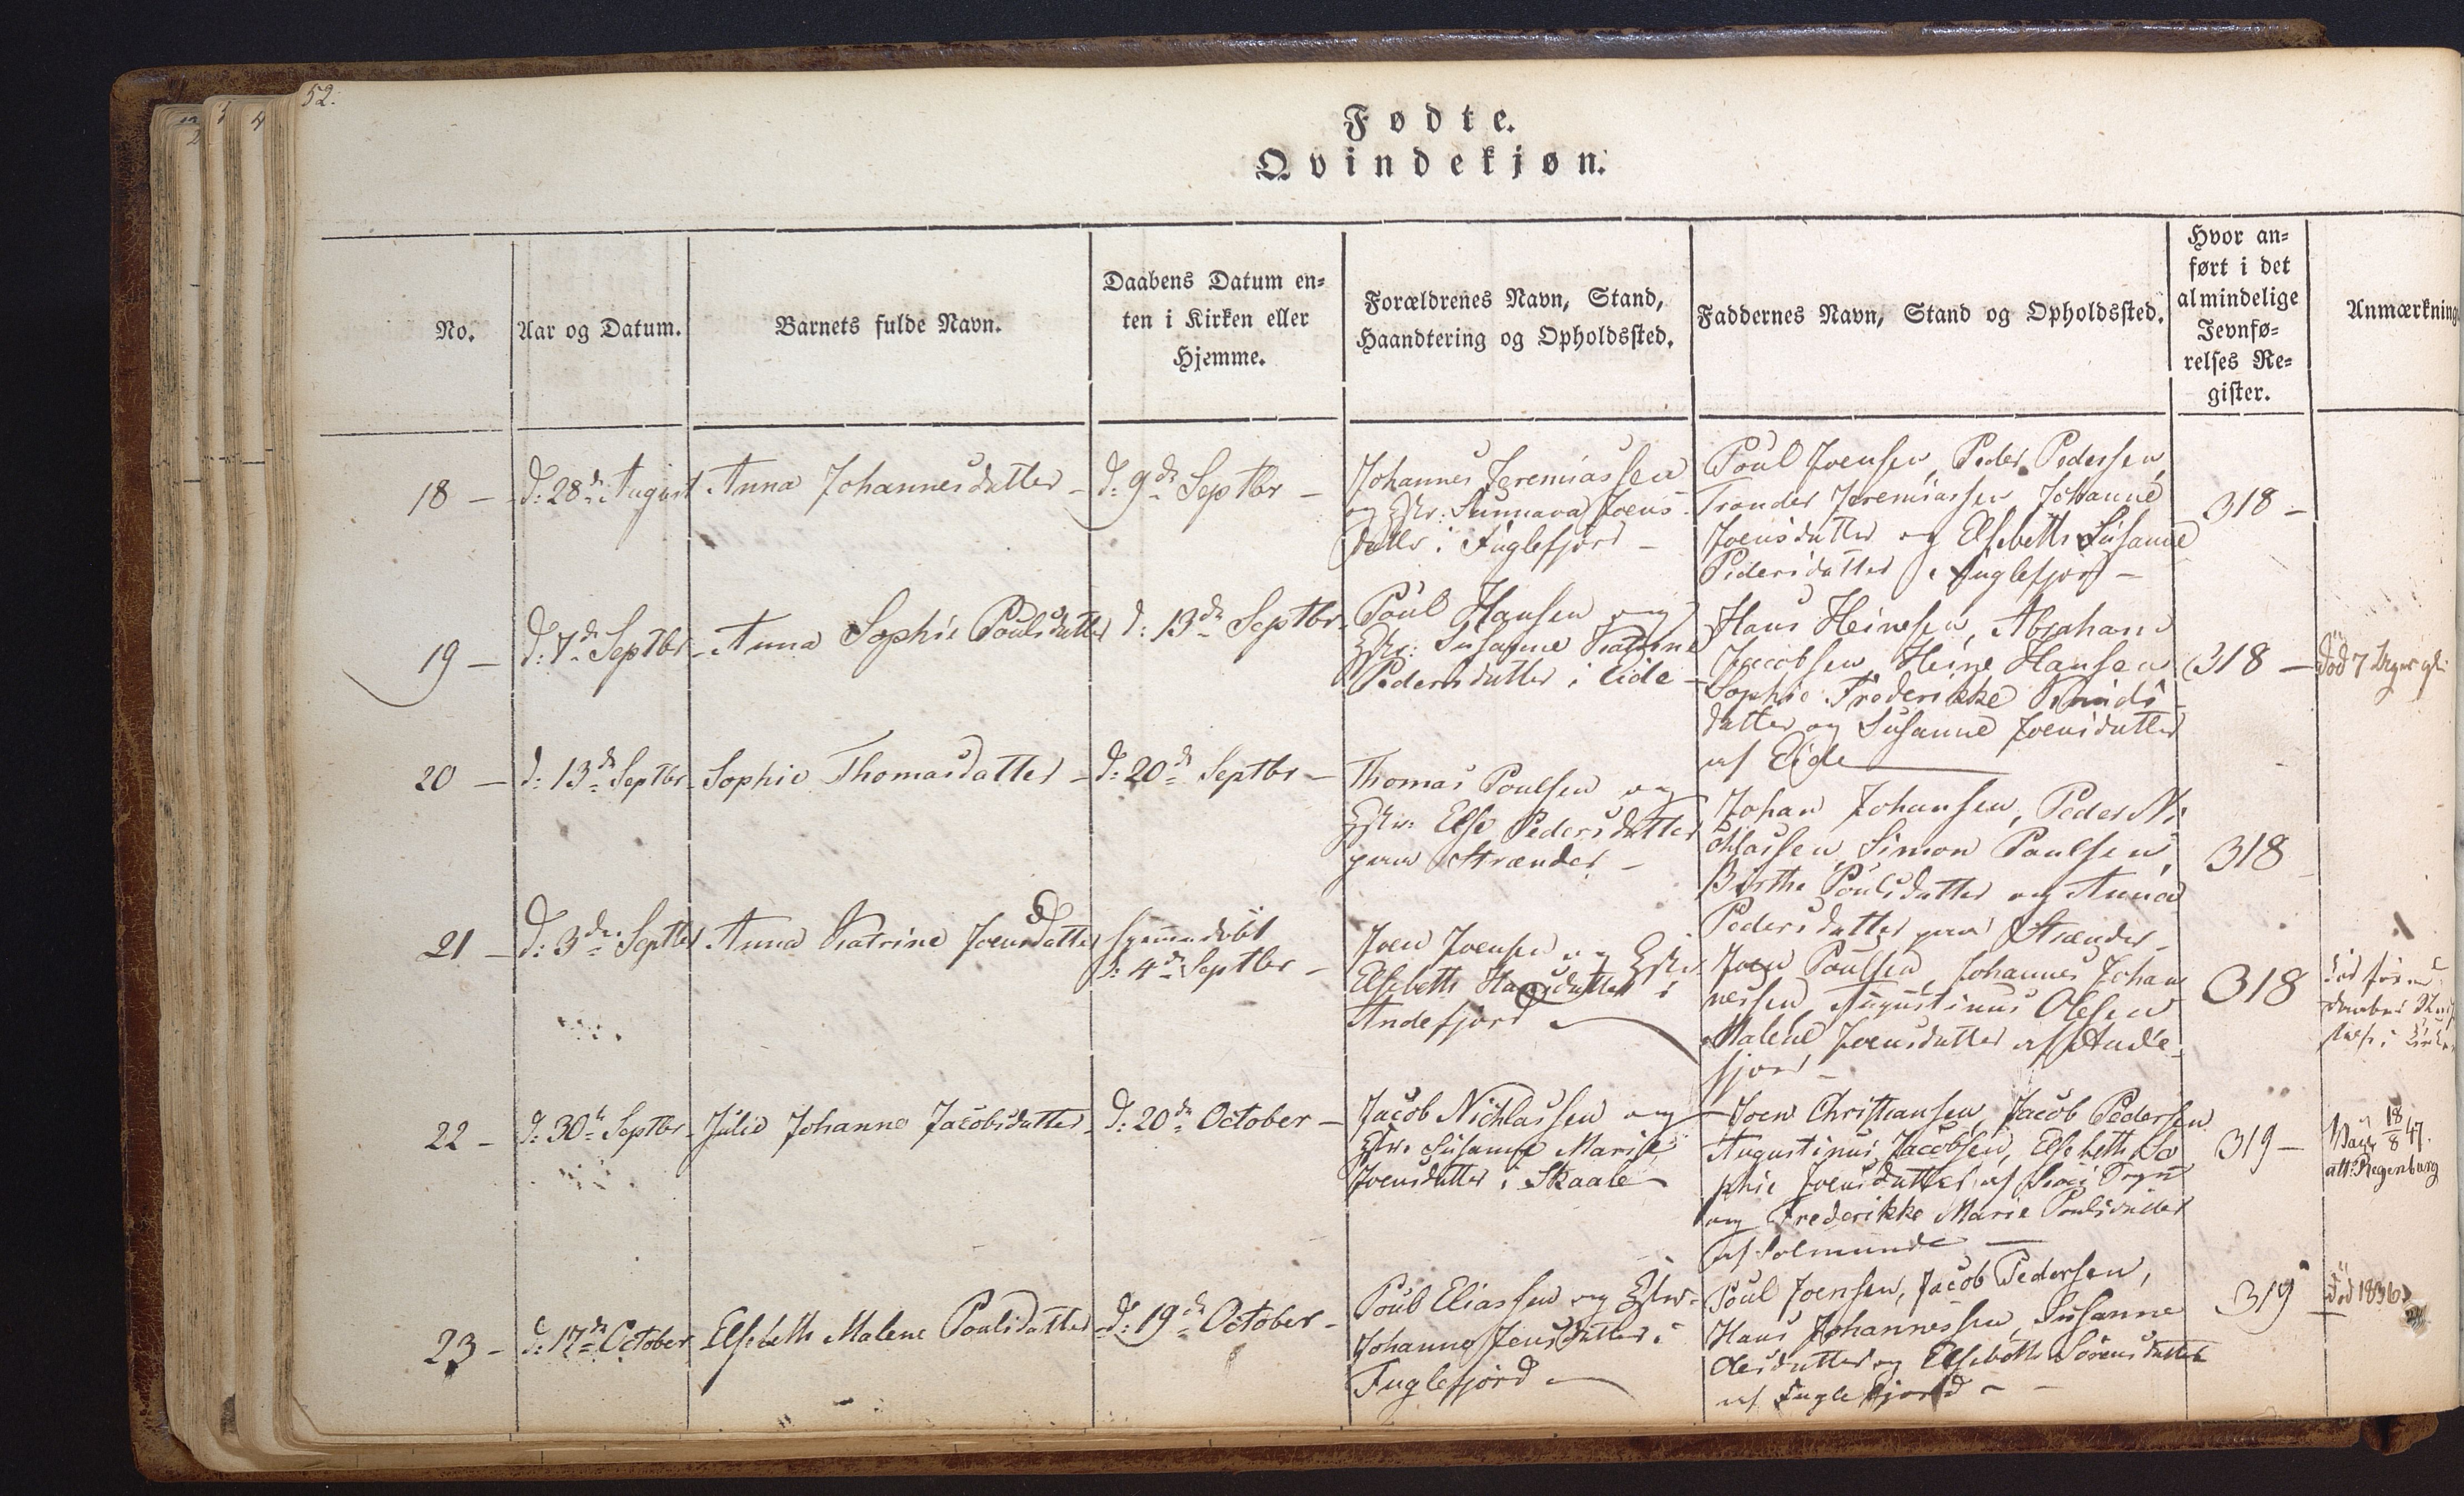 52.
Fødte.
Qvindekjøn.
No.
Aar og Datum.
Barnets fulde Navn.
Daabens Datum en-
ten i Kirken eller
Hjemme.
Forældrenes Navn, Stand,
Haandtering og Opholdssted.
Faddernes Navn, Stand og Opholdssted.
Hvor an-
ført i det
almindelige
Jevnfø-
relses Re-
gister.
Anmærkning
18 -
d: 28de August
Anna Johannesdatter -
d: 9de Septbr -
Johannes Jeremiassen
og Hstr: Sunnava Joens
datter i Fuglefjord -
Poul Joensen, Peder Pedersen,
Tronder Jeremiassen, Johanne
Joensdatter og Elsebeth Susanne
Pedersdatter i Fuglefjord -
318 -
19 -
d: 7de Septbr -
Anna Sophie Poulsdatter
d: 13de Septbr.
Poul Hansen og
Hstr: Susanne Katrine
Pedersdatter i Eide -
Hans Heinesen, Abraham
Jacobsen, Heine Hansen
Sophie Frederikke
datter og Susanne Joensdatter
af Eide
318 -
död 7 Dage gl:
20 -
d: 13de Septbr -
Sophie Thomasdatter -
d: 20de Septbr -
Thomas Poulsen og
Hstr: Else Pedersdatter
paa Strænder -
Johan Johansen, Peder Ni
chlassen, Simon Poulsen,
Birthe Poulsdatter og Anna
Pedersdatter paa Strænder -
318
21 -
d: 3de Septbr
Anna Katrine Joensdatter
hjemmedöbt
d: 4de Septbr -
Joen Joensen og Hstr
Elsebeth Hansdatter i
Andefjord
Joen Poulsen, Johannes Johan
nessen, Augustinus Olesen
Malene Joensdatter af Ande-
fjord -
318
död för
Daabens
i Kirken
22 -
d: 30te Septbr -
Julie Johanne Jacobsdatter -
d: 20de October -
Jacob Nichlassen og
Hstr: Susanne Marie
Joensdatter i Skaale
Joen Christiansen, Jacob Pedersen
Augustinus Jacobsen, Elsebeth So
phie Joensdatter af Sogn
og Frederikke Marie Poulsdatter
af Solmunde -
319 -
18/8 47.
att: Regenburg
23 -
d: 17de October
Elsebeth Malene Poulsdatter
d: 19de October -
Poul Eliassen og Hstr -
Johanne Jensdatter i
Fuglefjord -
Poul Joensen, Jacob Pedersen,
Hans Johannessen, Susanne
Olesdatter og Elsebeth Sörensdatter
af Fuglefjord -
319
död 1836